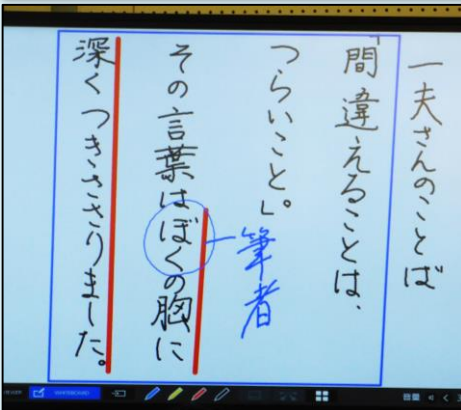 一夫さんのことば
「間違えることは、
つらいこと。」
その言葉はぼくの胸に
深くつきささりました。
筆者
WHITEBOARD